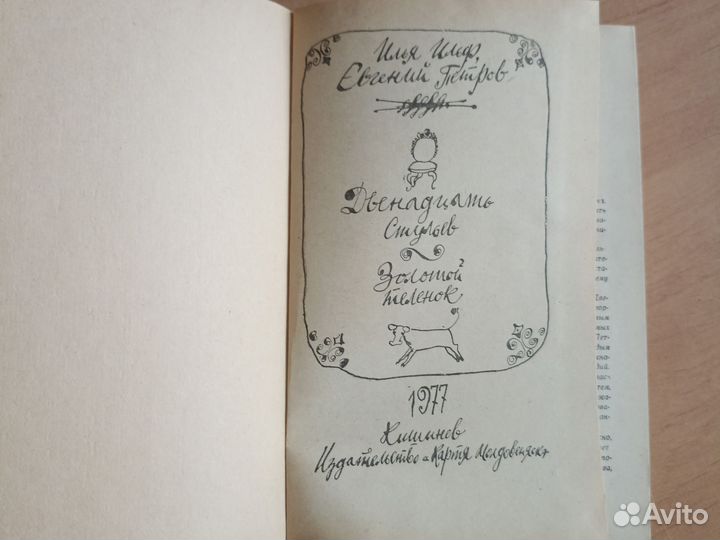 Илья Ильф,
Евгений Петров
Двенадцать
Стульев
Золотой
теленок
1977
Кишинев
Издательство «Картя Молдовеняскэ»
Avito